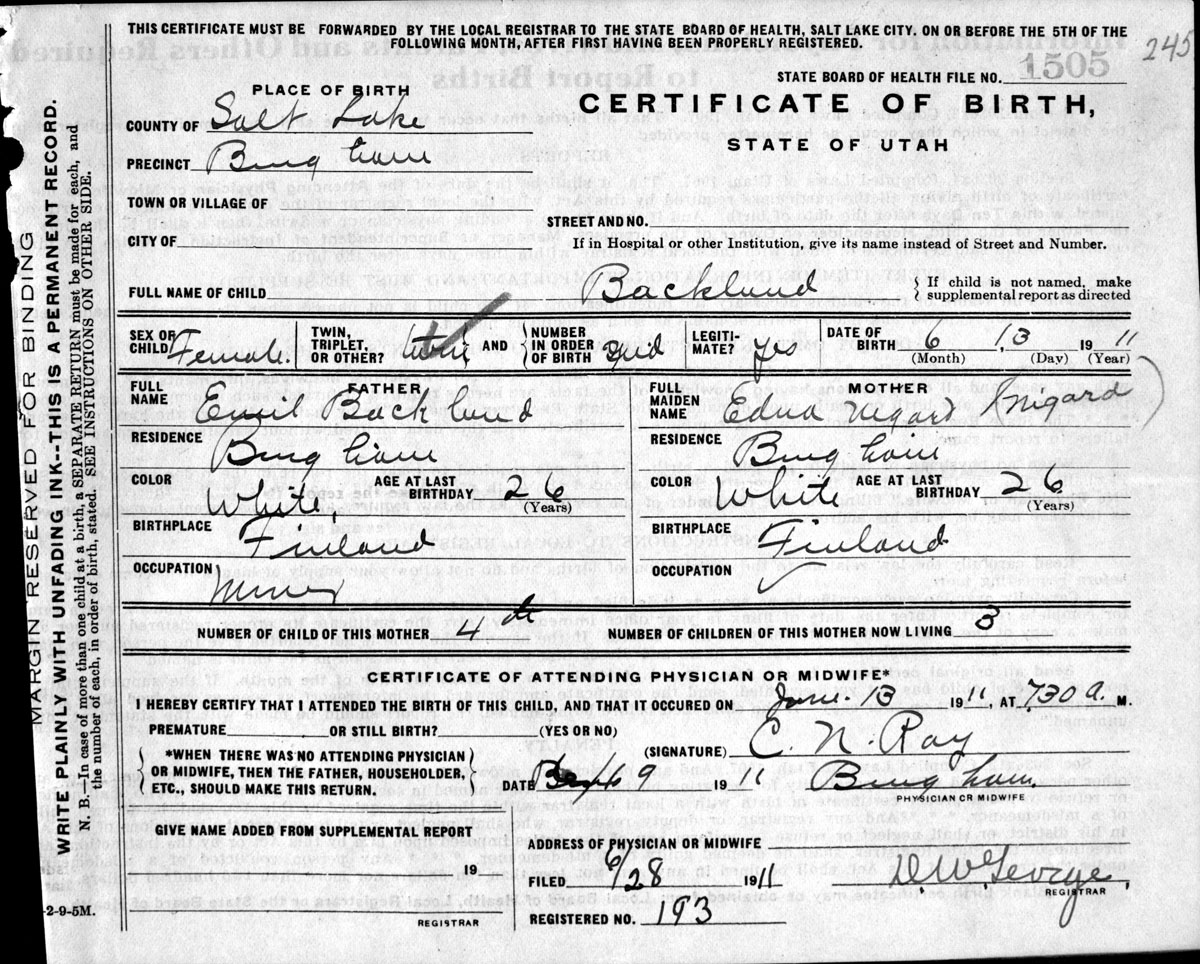 245
THIS CERTIFICATE MUST BE FORWARDED BY THE LOCAL REGISTRAR TO THE STATE BOARD OF HEALTH, SALT LAKE CITY. ON OR BEFORE THE 5TH OF THE
FOLLOWING MONTH, AFTER FIRST HAVING BEEN PROPERLY REGISTERED.
STATE BOARD OF HEALTH FILE NO. 1505
PLACE OF BIRTH
CERTIFICATE OF BIRTH,
STATE OF UTAH
COUNTY OF Salt Lake
PRECINCT Bingham
TOWN OR VILLAGE OF
STREET AND NO.
CITY OF
If in Hospital or other Institution, give its name instead of Street and Number.
FULL NAME OF CHILD Backlund { If child is not named, make
supplemental report as directed
SEX OF CHILD Female. TWIN, TRIPLET, OR OTHER? } AND { NUMBER IN ORDER OF BIRTH LEGITI-MATE? Yes DATE OF BIRTH 6 13 1911
(Month) (Day) (Year)
FATHER
FULL NAME Emil Backlund
RESIDENCE Bingham
COLOR White AGE AT LAST BIRTHDAY 26
(Years)
BIRTHPLACE Finland
OCCUPATION Miner
MOTHER
FULL MAIDEN NAME Edna Nigard (Nigard)
RESIDENCE Bingham
COLOR White AGE AT LAST BIRTHDAY 26
(Years)
BIRTHPLACE Finland
OCCUPATION
NUMBER OF CHILD OF THIS MOTHER 4th NUMBER OF CHILDREN OF THIS MOTHER NOW LIVING 3
CERTIFICATE OF ATTENDING PHYSICIAN OR MIDWIFE*
I HEREBY CERTIFY THAT I ATTENDED THE BIRTH OF THIS CHILD, AND THAT IT OCCURED ON June 13 1911, AT 730 a. M.
PREMATURE OR STILL BIRTH? (YES OR NO)
(SIGNATURE) C. N. Ray
{ *WHEN THERE WAS NO ATTENDING PHYSICIAN
OR MIDWIFE, THEN THE FATHER, HOUSEHOLDER,
ETC., SHOULD MAKE THIS RETURN. }
DATE 19 1911 Bingham.
PHYSICIAN OR MIDWIFE
GIVE NAME ADDED FROM SUPPLEMENTAL REPORT
19
REGISTRAR
ADDRESS OF PHYSICIAN OR MIDWIFE
FILED 6/28 1911 D W George,
REGISTRAR
REGISTERED NO. 193
MARGIN RESERVED FOR BINDING
WRITE PLAINLY WITH UNFADING INK--THIS IS A PERMANENT RECORD.
N. B.--In case of more than one child at a birth, a SEPARATE RETURN must be made for each, and
the number of each, in order of birth, stated. SEE INSTRUCTIONS ON OTHER SIDE.
-2-9-5M.